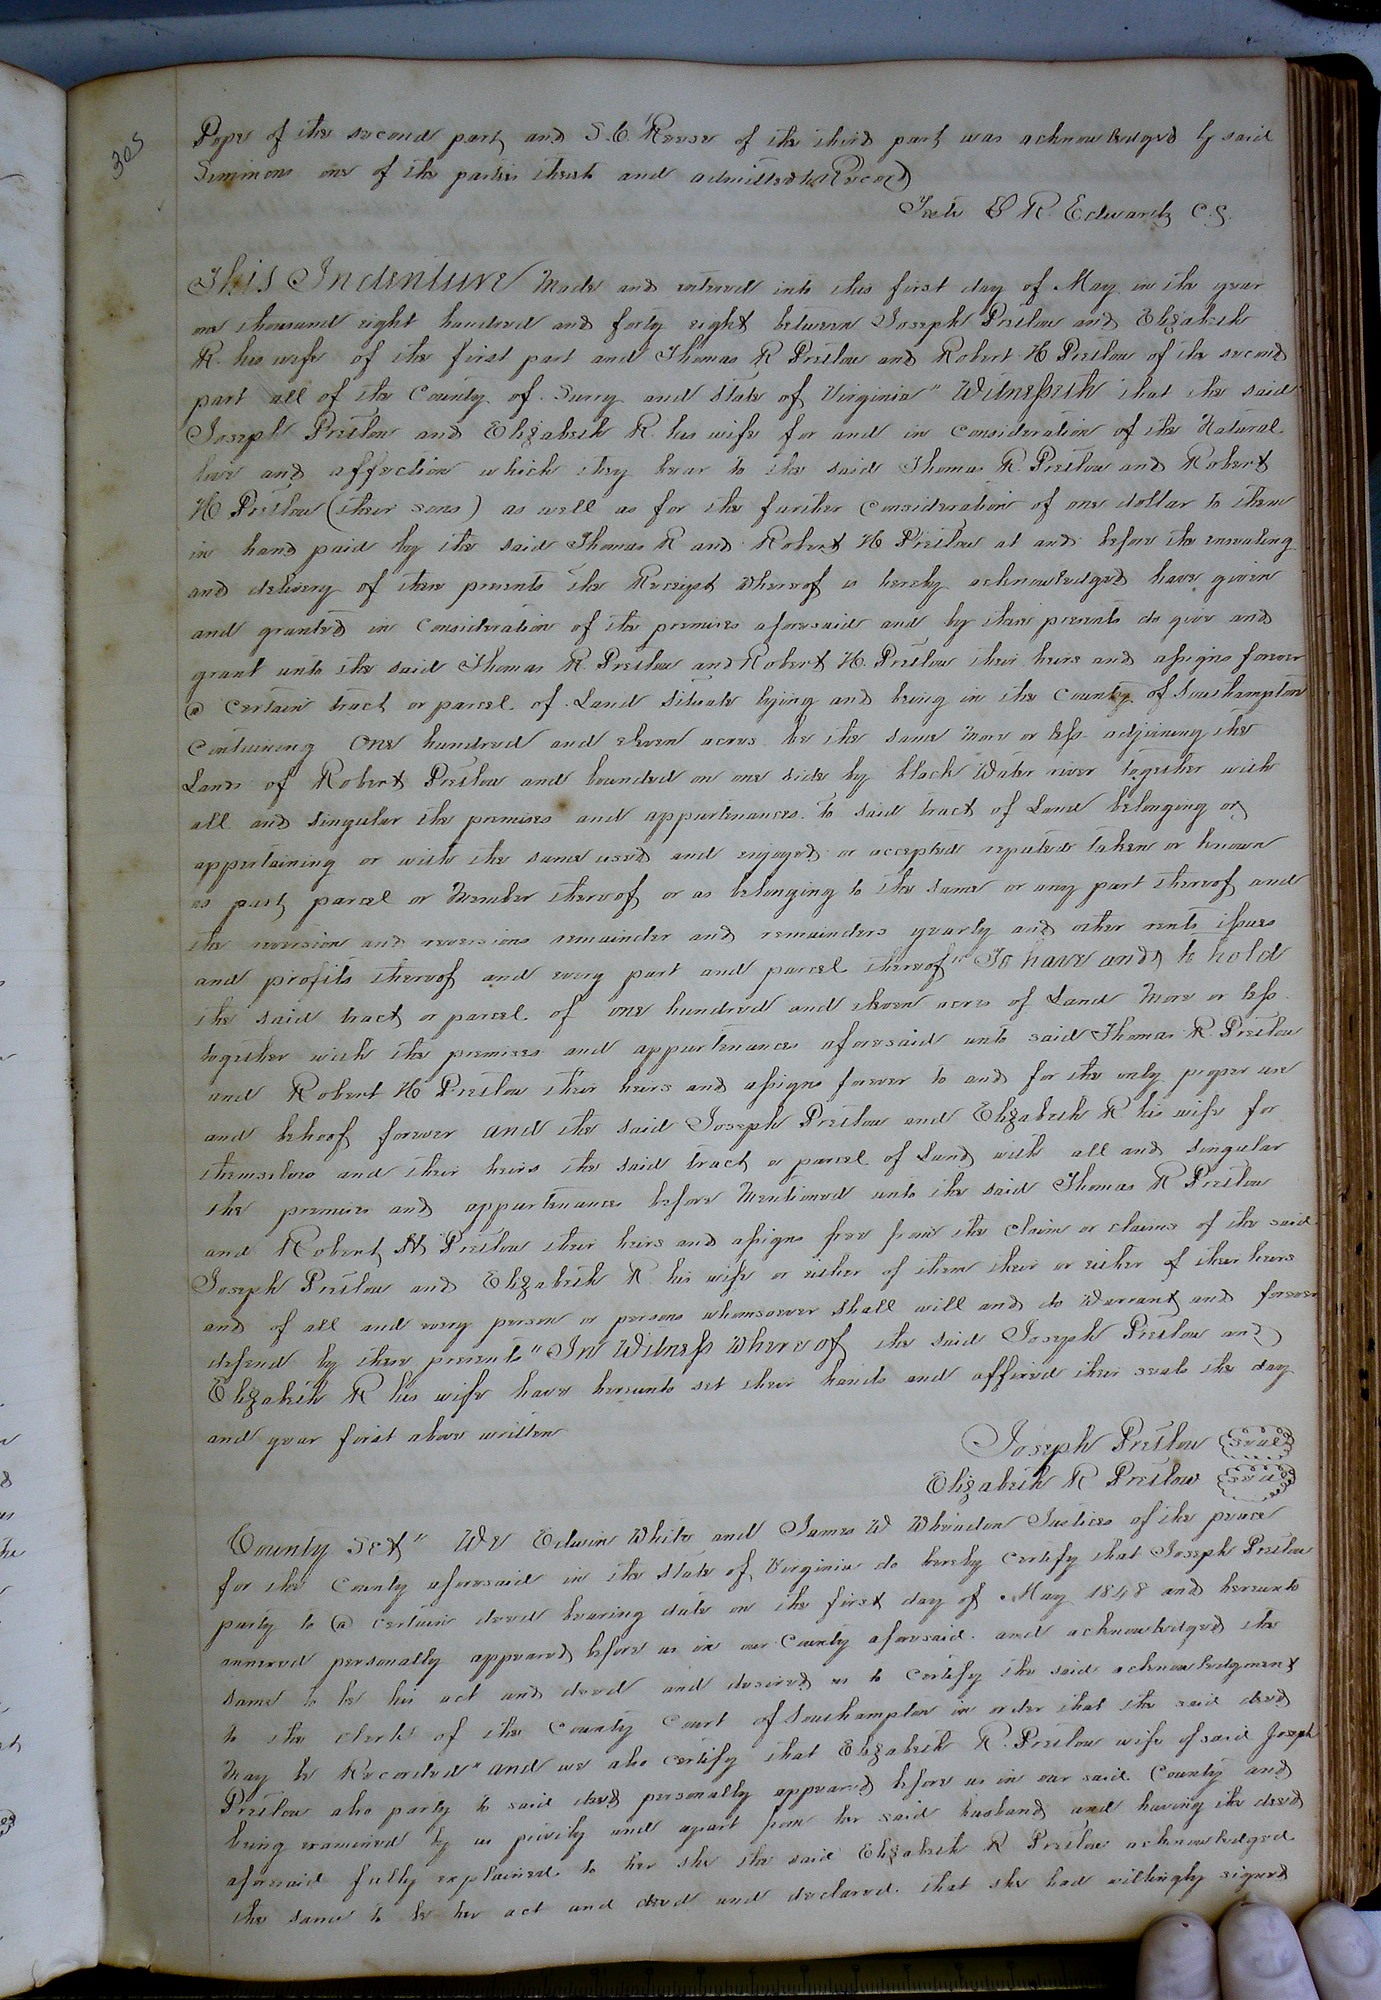 305
Pope of the second part and S. C. Reese of the third part was acknowledged by said
Simmons one of the parties thereto and admitted to Record
Teste L R. Edwards C. S.
This Indenture Made and entered into this first day of May in the year
one thousand eight hundred and forty eight between Joseph Pretlow and Elizabeth
R. his wife of the first part and Thomas R Pretlow and Robert H Pretlow of the second
part all of the County of Surry and State of Virginia" Witnesseth that the said
Joseph Pretlow and Elizabeth R. his wife for and in Consideration of the Natural
love and affection which they bear to the said Thomas R. Pretlow and Robert
H Pretlow (their sons) as well as for the further Consideration of one dollar to them
in hand paid by the said Thomas R and Robert H Pretlow at and before the ensealing
and delivery of these presents the Receipt whereof is hereby acknowledged have given
and granted in Consideration of the premises aforesaid and by these presents do give and
grant unto the said Thomas R. Pretlow and Robert H. Pretlow their heirs and assigns forever
a Certain tract or parcel of Land Situate lying and being in the County of Southampton
Containing One hundred and eleven acres be the same More or less adjoining the
Lands of Robert Pretlow and bounded on one side by black Water river together with
all and singular the premises and appurtenances to said tract of Land belonging or
appertaining or with the same used and enjoyed or accepted reputed taken or known
as part parcel or Member thereof or as belonging to the same or any part thereof and
the reversion and reversions remainder and remainders yearly and other rents issues
and profits thereof and every part and parcel thereof" To have and to hold
the said tract or parcel of one hundred and eleven acres of Land More or less
together with the premises and appurtenances aforesaid unto said Thomas R. Pretlow
and Robert H Pretlow their heirs and assigns forever to and for the only proper use
and behoof forever and the said Joseph Pretlow and Elizabeth R his wife for
themselves and their heirs the said tract or parcel of Land with all and singular
the premises and appurtenances before Mentioned unto the said Thomas R Pretlow
and Robert H Pretlow their heirs and assigns free from the claim or claims of the said
Joseph Pretlow and Elizabeth R. his wife or either of them their or either of their heirs
and of all and every person or persons whomsoever shall will and do Warrant and forever
defend by these presents" In Witness Whereof the said Joseph Pretlow and
Elizabeth R his wife have hereunto set their hands and affixed their seals the day
and year first above written
Joseph Pretlow Seal
Elizabeth R Pretlow Seal
County Sct" We Edwin White and James W Justices of the peace
for the County aforesaid in the State of Virginia do hereby Certify that Joseph Pretlow
party to a certain deed bearing date on the first day of May 1848 and hereunto
annexed personally appeared before us in our County aforesaid and acknowledged the
same to be his act and deed and desired us to Certify the said acknowledgment
to the Clerk of the County Court of Southampton in order that the said deed
May be Recorded" and we also certify that Elizabeth R. Pretlow wife of said Joseph
Pretlow also party to said deed personally appeared before us in our said County and
being examined by us privily and apart from her said husband and having the deed
aforesaid fully explained to her she the said Elizabeth R Pretlow acknowledged
the same to be her act and deed and declared that she had willingly signed